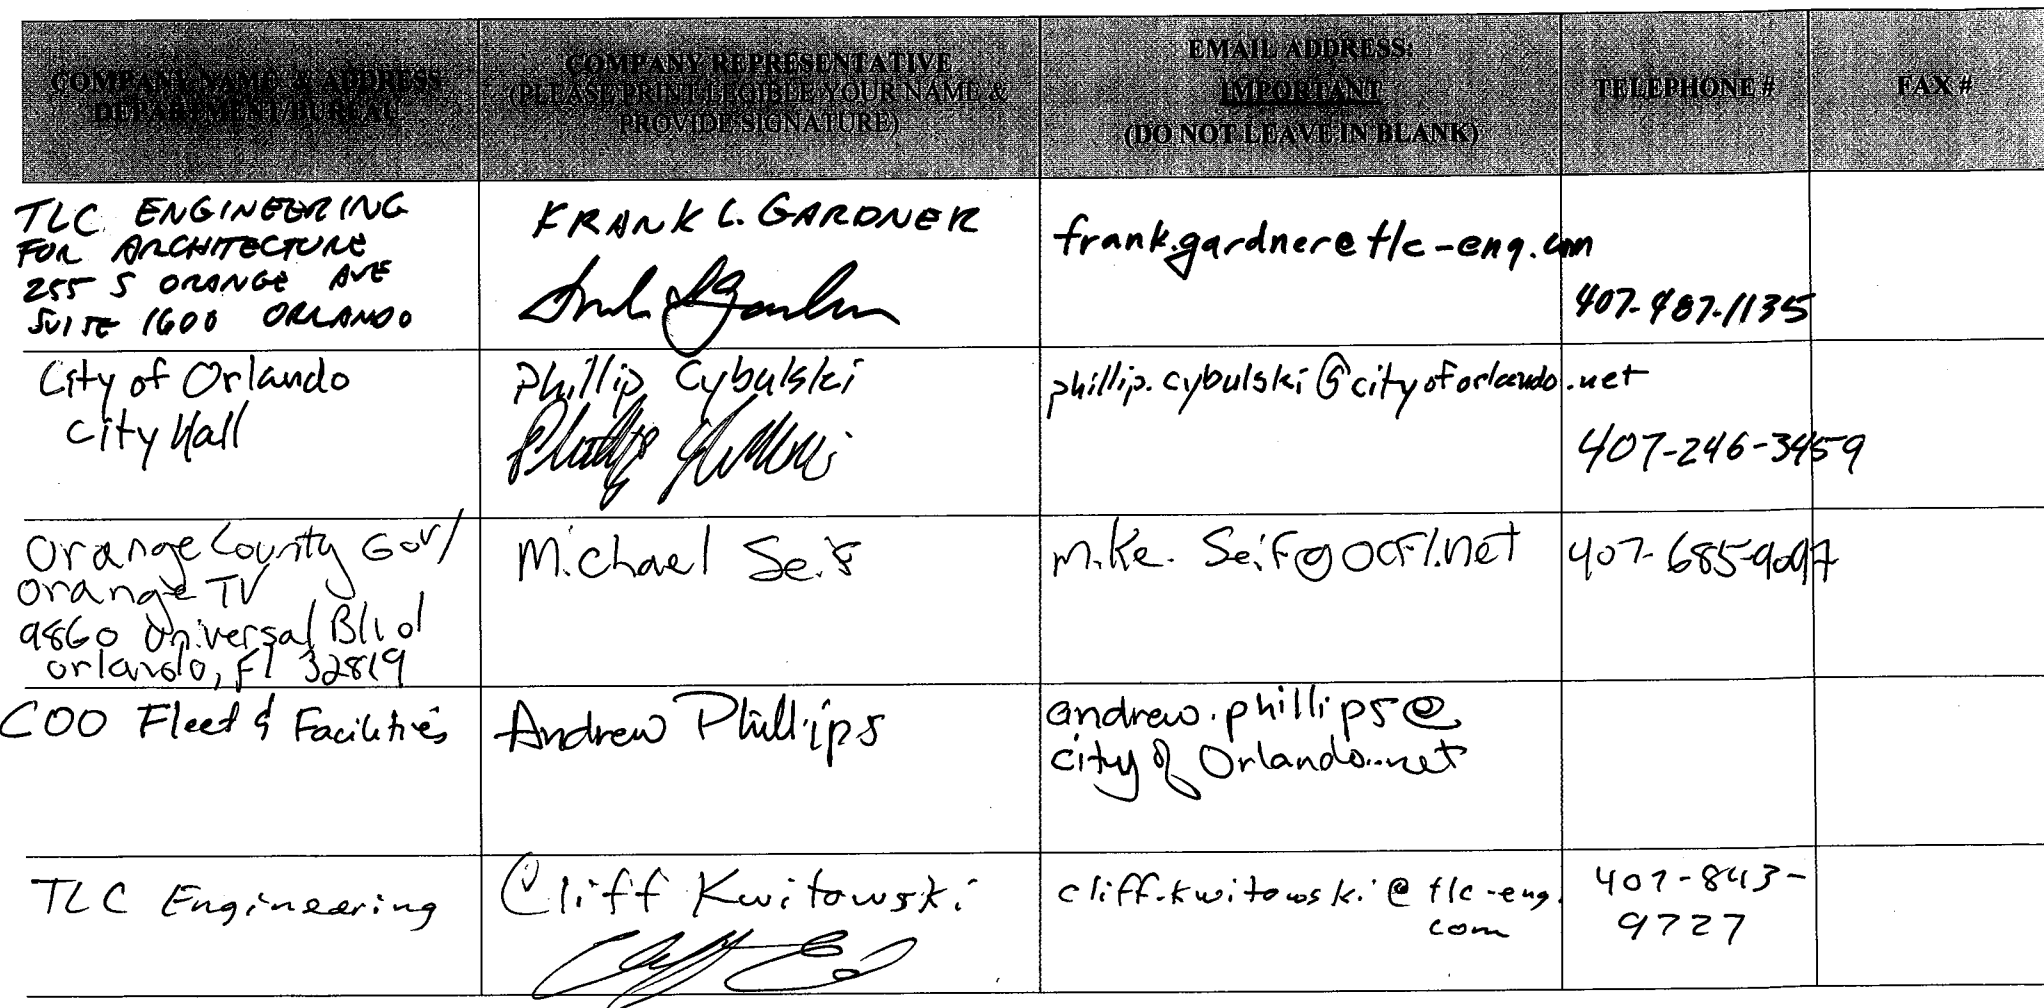 COMPANY NAME & ADDRESS
DEPARTMENT/BUREAU
COMPANY REPRESENTATIVE
(PLEASE PRINT LEGIBLE YOUR NAME &
PROVIDE SIGNATURE)
EMAIL ADDRESS:
IMPORTANT
(DO NOT LEAVE IN BLANK)
TELEPHONE #
FAX #
TLC ENGINEERING
FOR ARCHITECTURE
255 S ORANGE AVE
SUITE 1600 ORLANDO
FRANK L. GARDNER
frank.gardner@tlc-eng.com
407-487-1135
City of Orlando
City Hall
Phillip Cybulski
phillip.cybulski@cityoforlando.net
407-246-3459
Orange County Gov/
Orange TV
9860 Universal Blvd
Orlando, Fl 32819
Michael Seif
Mike.Seif@OCFl.net
407-685-9097
COO Fleet & Facilities
Andrew Phillips
andrew.phillips@
cityofOrlando.net
TLC Engineering
Cliff Kwitowski
cliff.kwitowski@tlc-eng.
com
407-843-
9727